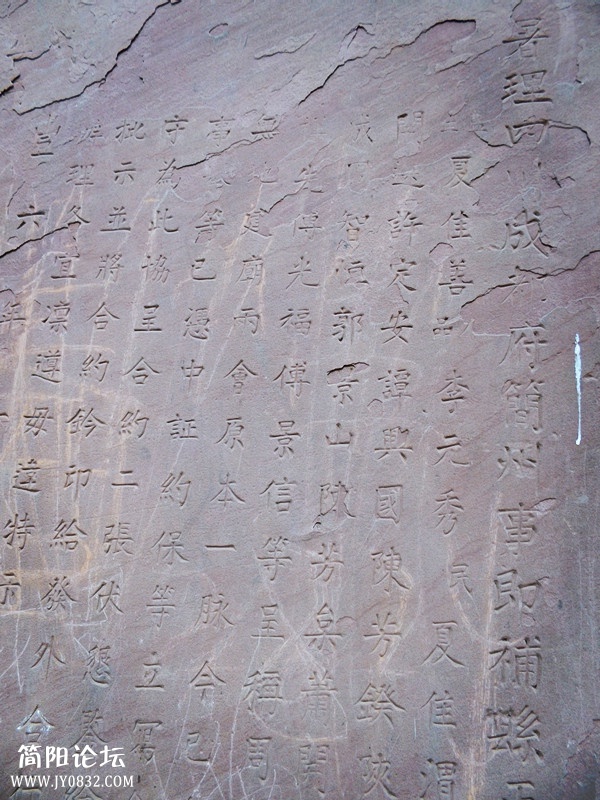 署理四川成都府簡州事即補縣正
夏佳善 李元秀民夏佳渭
許定安譚興國陳芳
智恒郭京山陳芳泉蕭開
先得光福傅景信等呈稱
無地建廟兩會原本一脉今已
等已憑中証約保等立寫
守為此協呈合約二張伏懇
批示並將合約鈐印給發外合
理各宣凜遵毋違特示
六年
简阳论坛
WWW.JY0832.COM